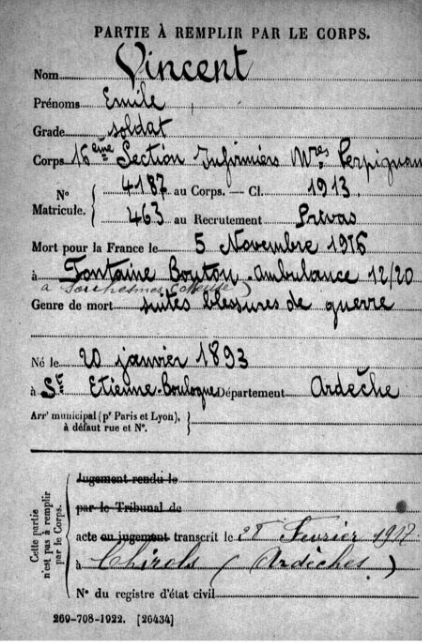 PARTIE À REMPLIR PAR LE CORPS.
Nom Vincent
Prénoms Emile
Grade soldat
Corps 16ème Section Infirmiers Mres Perpignan
N° Matricule. 4187 au Corps. — Cl. 1913
463 au Recrutement Privas
Mort pour la France le 5 Novembre 1916
à Fontaine Bouton - Ambulance 12/20
à (Meuse)
Genre de mort suites blessures de guerre
Né le 20 janvier 1893
à St Etienne-Boulogne Département Ardèche
Arrt municipal (pr Paris et Lyon),
à défaut rue et N°.
Cette partie n'est pas à remplir par le Corps.
Jugement rendu le
par le Tribunal de
acte ou jugement transcrit le Février 1917
à Chirols (Ardèches)
N° du registre d'état civil
269-708-1922. [26434]